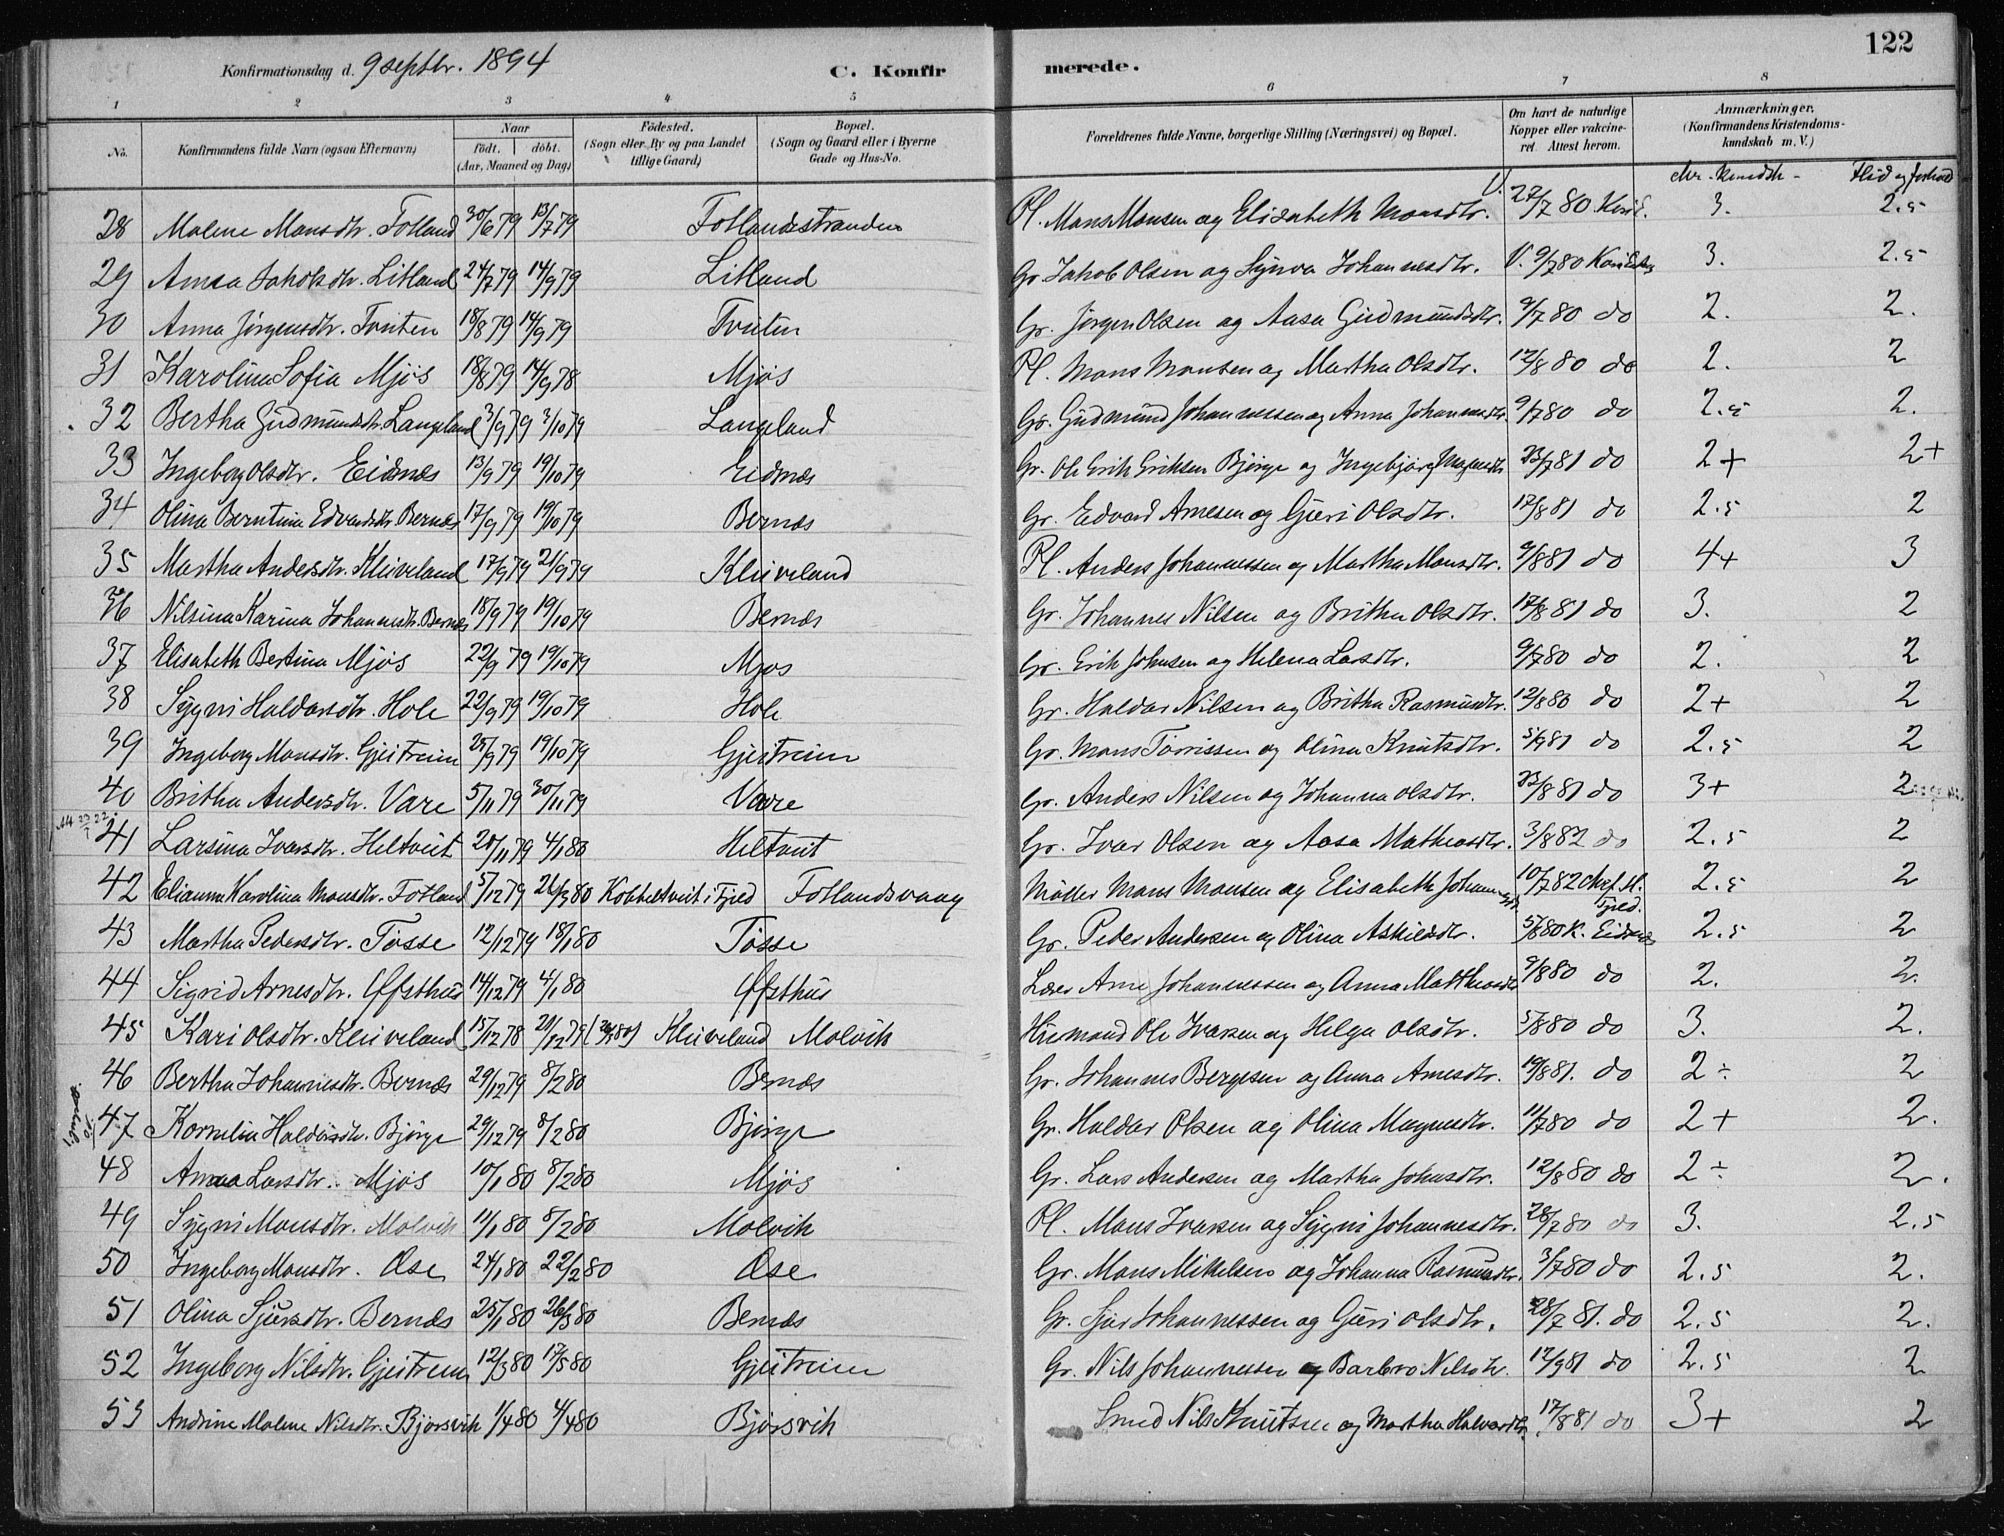 122
Konfirmationsdag d. 9 septbr. 1894 C. Konfirmerede.
1 2 3 4 5 6 7 8
No. Konfirmandens fulde Navn (ogsaa Efternavn) Naar født. døbt. (Aar, Maaned og Dag) Fødested. (Sogn eller By og paa Landet tillige Gaard) Bopæl. (Sogn og Gaard eller i Byerne Gade og Hus-No. Forældrenes fulde Navne, borgerlige Stilling (Næringsvei) og Bopæl. Om havt de naturlige Kopper eller vakcineret. Attest herom. Anmærkninger. (Konfirmandens Kristendomskundskab m. V.)
Flid og forhold
28 Malene Monsdtr. Fotland 30/6 79 13/7 79 Fotlandsstranden Pl. Mons Monsen og Elisabeth Monsdtr. V. 27/7 80 3. 2.5
29 Anna Jakobsdtr. Litland 24/7 79 14/9 79 Litland Gr. Jakob Olsen og Synva Johannesdtr. V. 9/7 80 3. 2.5
30 Anna Jørgensdtr. Tveiten 18/8 79 14/9 79 Tveiten Gr. Jørgen Olsen og Aasa Gudmundsdtr. 9/7 80 do 2. 2.
31 Karolina Sofia Mjøs 18/8 79 14/9 78 Mjøs Pl. Mons Monsen og Martha Olsdtr. 12/8 80 do 2. 2
32 Bertha Gudmundsdtr. Langeland 3/9 79 3/10 79 Langeland Gr. Gudmund Johannessen og Anna Johannesdtr. 9/7 80 do 2.5 2.
33 Ingeborg Olsdtr. Eidsnes 13/9 79 19/10 79 Eidsnæs Gr. Ole Erik Eriksen Bjørge og Ingebjørg Magnesdtr. 23/7 81 do 2+ 2+
34 Olina Berntina Edvardsdtr. Bernæs 17/9 79 19/10 79 Bernæs Gr. Edvard Arnesen og Guri Olsdtr. 17/8 81 do 2.5 2
35 Martha Andersdtr. Kleiveland 17/9 79 21/9 79 Kleiveland Pl. Anders Johannessen og Martha Monsdtr. 9/8 81 do 4+ 3
36 Nilsina Karina Johannesdtr. Bernæs 18/9 79 19/10 79 Bernæs Gr. Johannes Nilsen og Britha Olsdtr. 17/8 81 do 3. 2
37 Elisabeth Bertina Mjøs 22/9 79 19/10 79 Mjøs Gr. Erik Johnsen og Helena Larsdtr. 9/7 80 do 2. 2
38 Sygni Haldorsdtr. Hole 22/9 79 19/10 79 Hole Gr. Haldor Nilsen og Britha Rasmusdtr. 12/8 80 do 2+ 2
39 Ingeborg Monsdtr. Gjeitreim 25/9 79 19/10 79 Gjeitreim Gr. Mons Torrissen og Olina Knutsdtr. 5/9 81 do 2.5 2
40 Britha Andersdtr. Vare 5/11 79 30/11 79 Vare Gr. Anders Nilsen og Johanna Olsdtr. 23/8 81 do 3+ 2
41 Larsina Ivarsdtr. Heltveit 20/11 79 4/1 80 Heltveit Gr. Ivar Olsen og Aasa Matheasdtr. 3/8 82 do 2.5 2
42 Elianna Karolina Monsdtr. Fotland 5/12 79 26/3 80 Kobbeltveit i Fjeld Fotlandsvaag Møller Mons Monsen og Elisabeth Johannesdtr. 10/7 82 Fjeld. 2.5 2
43 Martha Pedersdtr. Tøsse 12/12 79 18/1 80 Tøsse Gr. Peder Andersen og Olina Askildsdtr. 5/8 80 K. Eidsnes 2.5 2
44 Sigrid Arnesdtr. Offsthus 14/12 79 4/1 80 Offsthus Lærer Arne Johannessen og Anna Mattheasdtr 9/8 80 do 2. 2.
45 Kari Olsdtr. Kleiveland 15/12 78 29/12 79 Kleiveland Molvik Husmand Ole Ivarsen og Helga Olsdtr. 5/8 80 do 3. 2.
46 Bertha Johannesdtr. Bernæs 29/12 79 8/2 80 Bernæs Gr. Johannes Bergesen og Anna Arnesdtr. 19/8 81. do 2÷ 2
47 Kornelia Haldorsdtr. Bjørge 29/12 79 8/2 80 Bjørge Gr. Haldor Olsen og Olina Magnesdtr. 11/7 80 do 2+ 2.
48 Anna Larsdtr. Mjøs 10/1 80 8/2 80 Mjøs Gr. Lars Andersen og Martha Johnsdtr. 12/8 80 do 2÷ 2.
49 Sygni Monsdtr. Molvik 11/1 80 8/2 80 Molvik Pl. Mons Ivarsen og Sygni Johannesdtr. 28/7 80 do 3. 2.5
50 Ingeborg Monsdtr. Øse 24/1 80 22/2 80 Øse Gr. Mons Mikelsen og Johanna Rasmusdtr. 3/7 80 do 2.5 2.
51 Olina Sjursdtr. Bernæs 25/1 80 26/3 80 Bernæs Gr. Sjur Johannessen og Guri Olsdtr. 28/7 81. do 2.5 2.
52 Ingeborg Nilsdtr. Gjeitreim 12/3 80 17/5 80 Gjeitreim Gr. Nils Johannessen og Barbro Nilsdtr. 12/9 81 do 2.5 2
53 Andrine Malene Nilsdtr. Bjørsvik 1/4 80 4/4 80 Bjørsvik Smed Nils Knutsen og Martha Halvordtr. 17/8 81 do 3+ 2